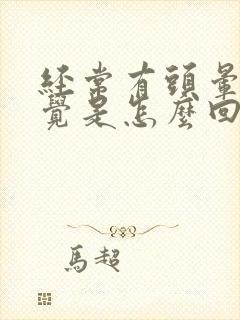 經常有頭暈
覺是怎麼回
馬超